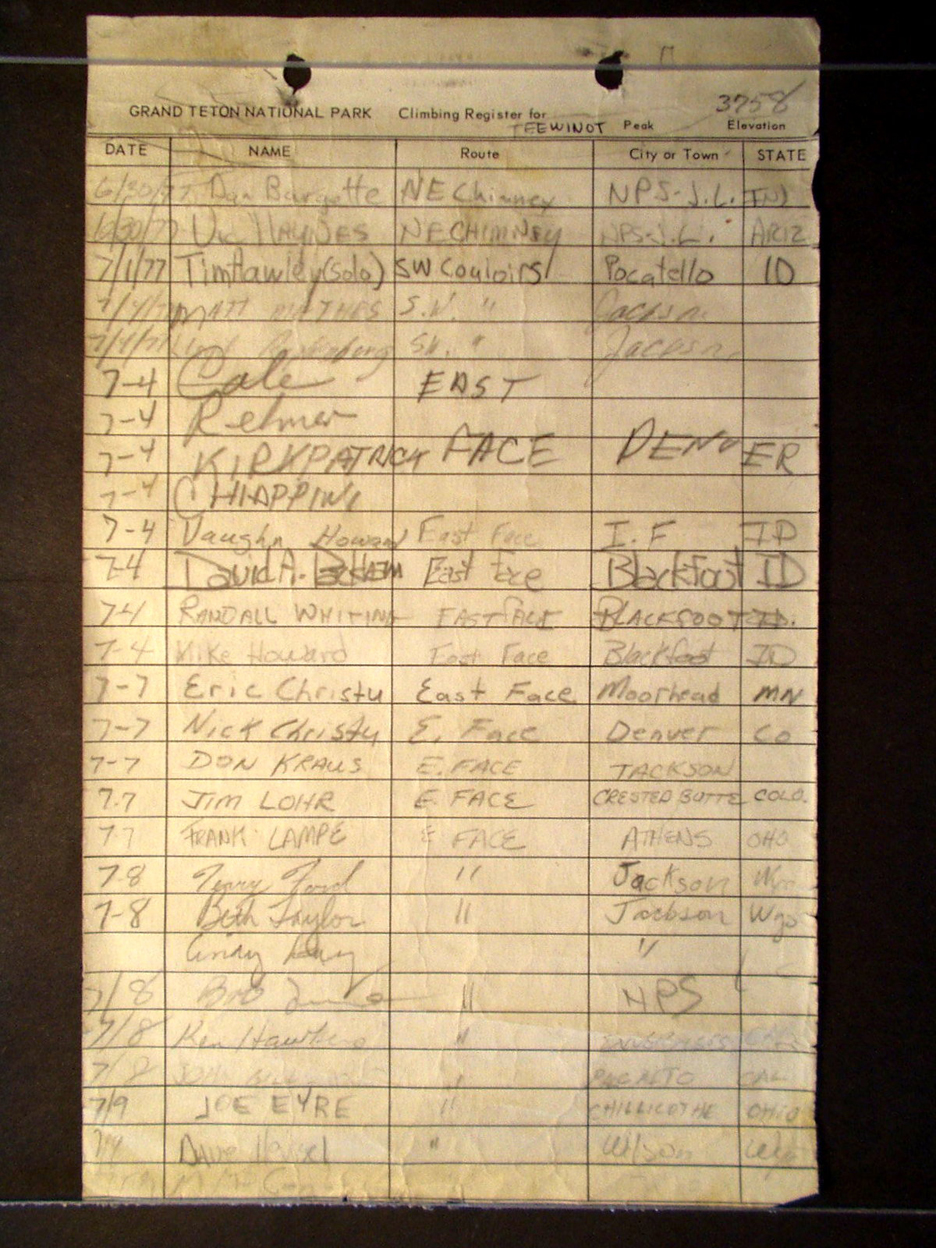 3758
GRAND TETON NATIONAL PARK Climbing Register for TEEWINOT Peak Elevation
DATE NAME Route City or Town STATE
6/30/77 Dan Burgette NE Chimney NPS-J.L. IN
6/30/77 Vic HAYNES NE CHIMNEY NPS-J.L. ARIZ
7/1/77 Tim Hawley (solo) SW Couloirs Pocatello ID
7/4/77 MATT S.W. " Jackson
7/4/77 SW. " Jackson
7-4 Cale EAST
7-4 Relmer
7-4 KIRKPATRICK FACE DENVER
7-4 CHIAPPINI
7-4 Vaughn Howard East Face I.F ID
7-4 David A. East Face Blackfoot ID
7-4 RANDALL WHITING EAST FACE BLACKFOOT ID.
7-4 Mike Howard East Face Blackfoot ID
7-7 Eric Christu East Face Moorhead MN
7-7 Nick Christu E. Face Denver Co
7-7 DON KRAUS E. FACE JACKSON
7.7 JIM LOHR E. FACE CRESTED BUTTE COLO.
7.7 FRANK LAMPE E FACE ATHENS OHO
7-8 Terry Ford " Jackson Wyo
7-8 Beth Taylor " Jackson Wyo
Cindy "
7/8 Bob " NPS
7/8 Ken "
7/8 JOHN " CAL
7/9 JOE EYRE " CHILLICOTHE OHIO
Dave " Wilson Wyo